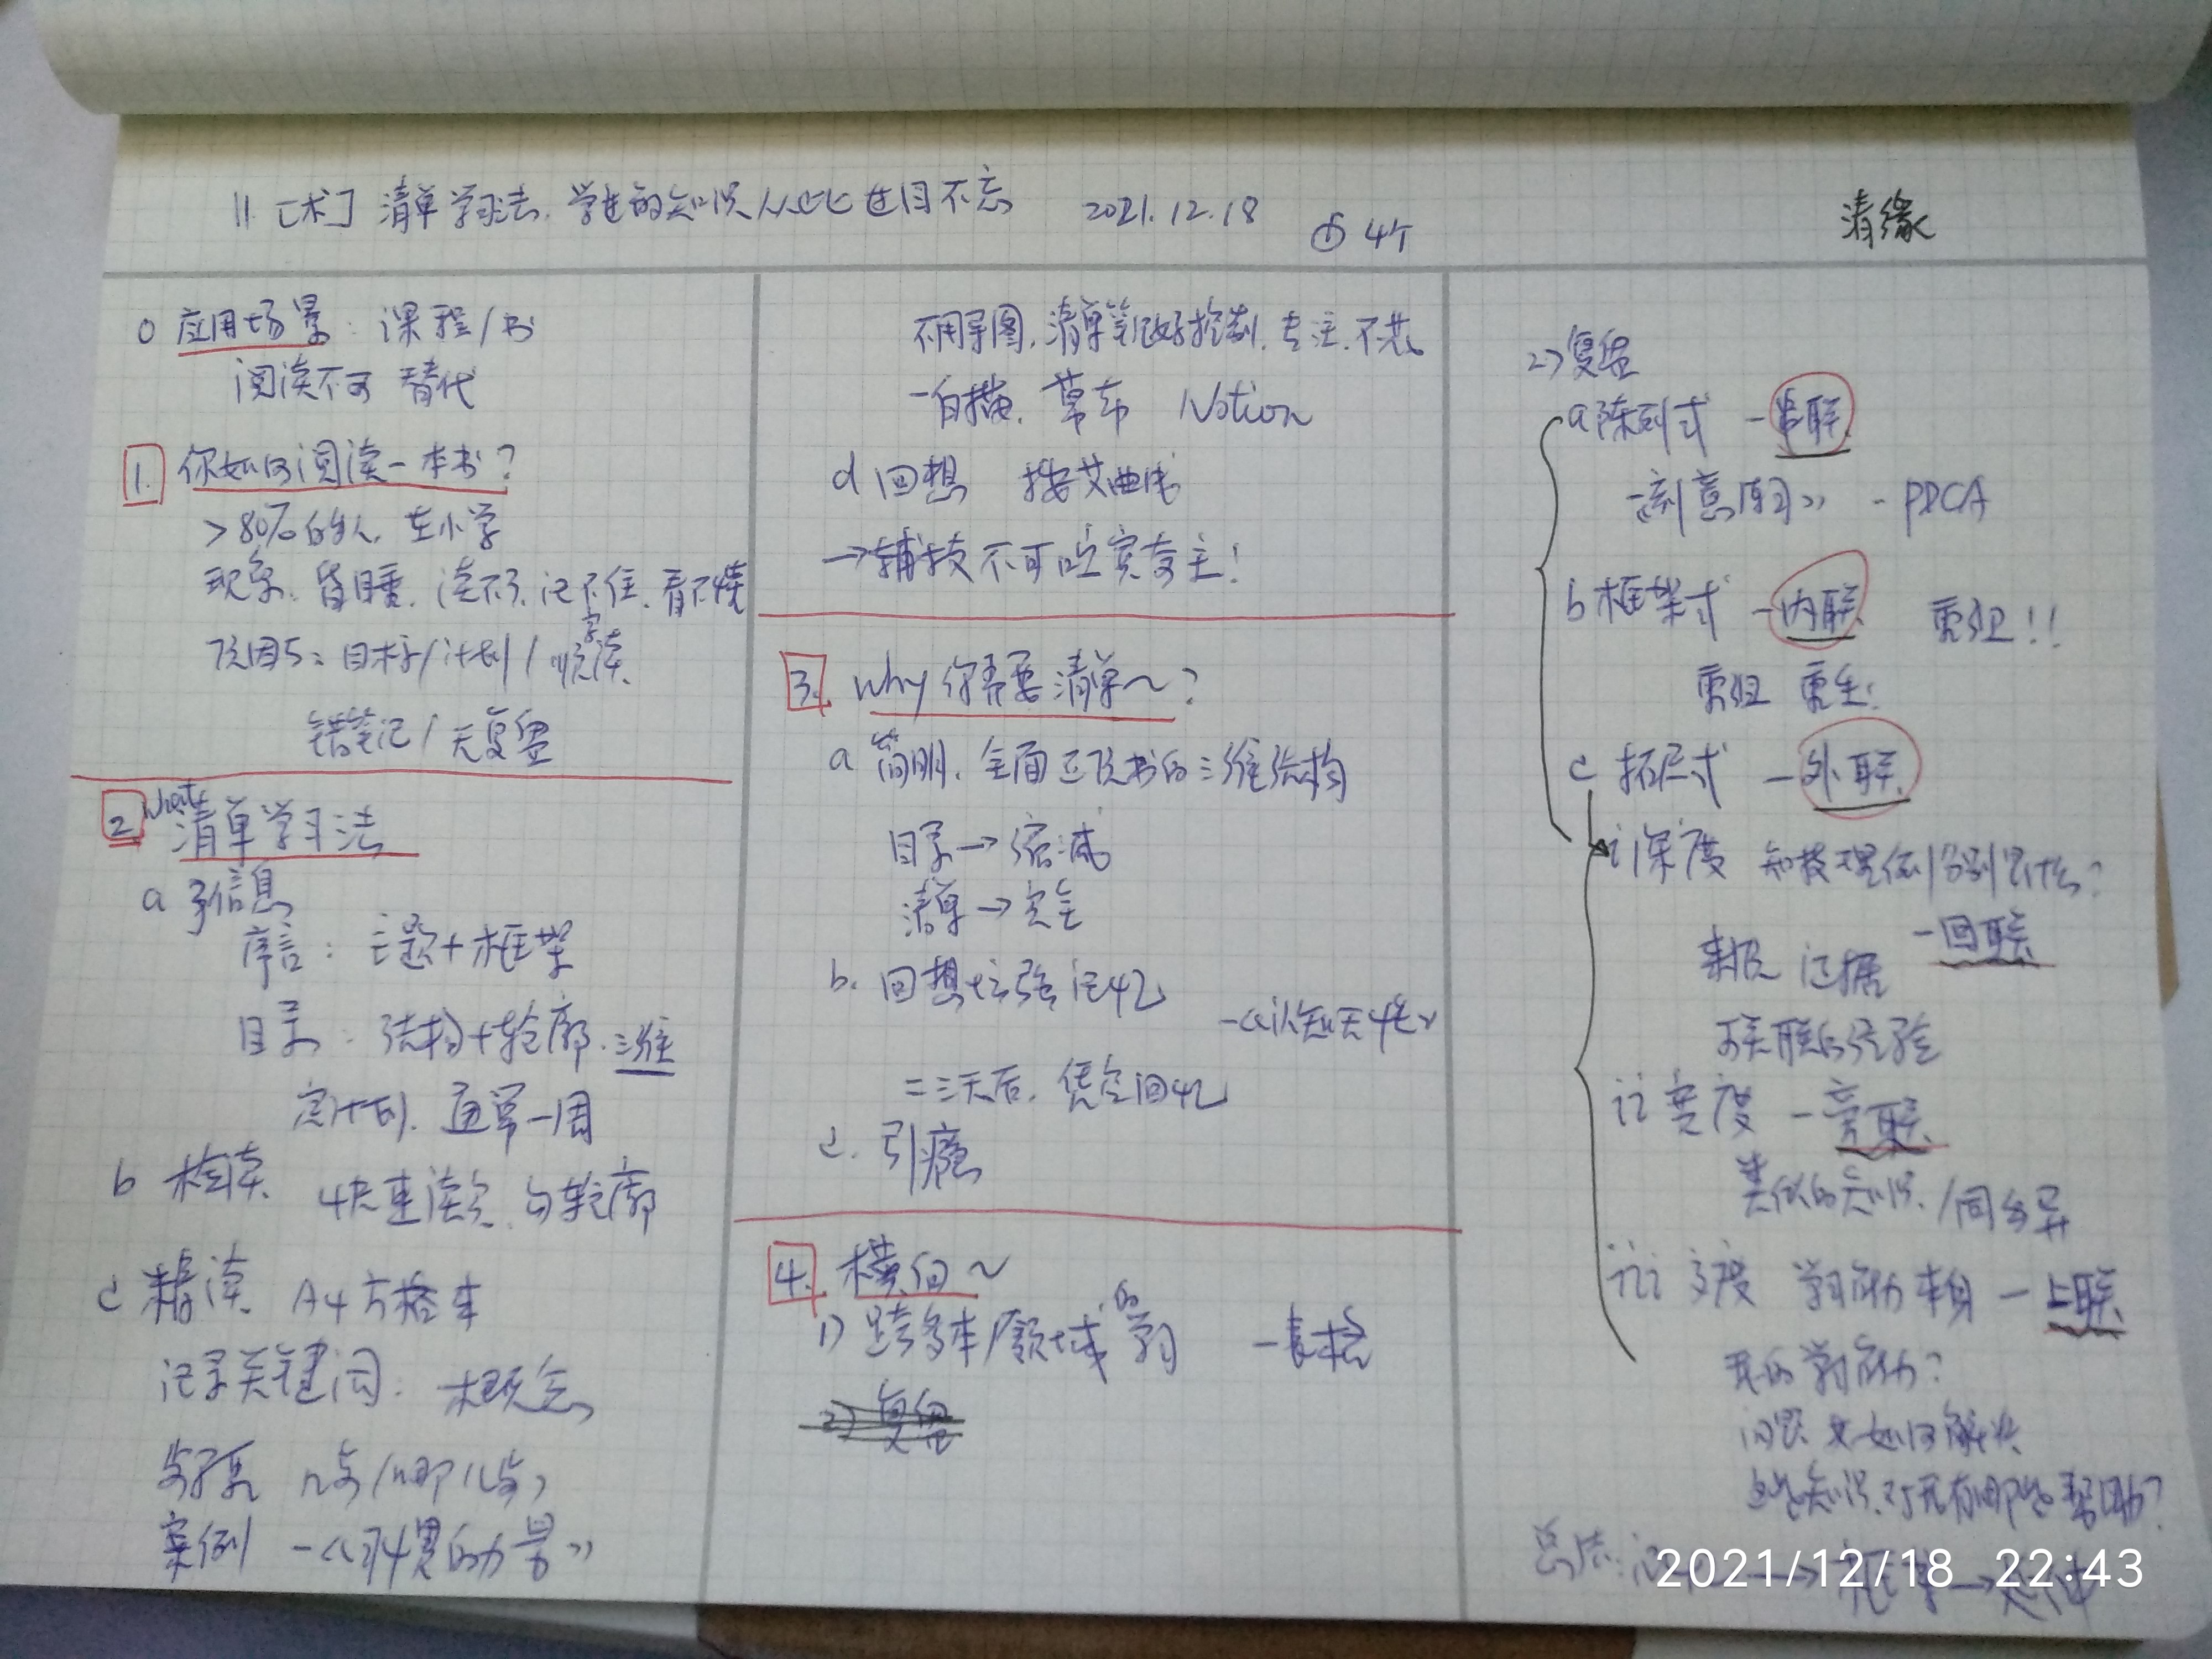 11. [术] 清单学习法, 学过的知识从此过目不忘 2021.12.18 4个 清缘
0 应用场景: 课程/书
阅读不可替代
1. 你如何阅读一本书?
>80%的人, 在小学
现象: 瞌睡, 读不了, 记不住, 看不懂
原因5: 目标/计划/顺序读
错笔记/无复盘
2. what 清单学习法
a 享信息
序言: 主题+框架
目录: 结构+轮廓 三维
定计划, 通常一周
b 构读 快速读完, 勾轮廓
c 精读 A4方格本
记录关键词: 概念
n点/哪几点
案例 -《习惯的力量》
不用导图, 清单笔记好控制, 专注, 不花
-白描, 幕布 Notion
d 回想 按艾曲线
→辅技不可喧宾夺主!
3. why 你需要清单~?
a 简明, 全面还原书的三维结构
目录→缩减
清单→完全
b. 回想增强记忆 -《认知天性》
=三天后, 凭空回忆
c. 引瘾
4. 横向~
1) 跨多本/领域的学习 -表格
2) 复盘
2) 复盘
a 陈列式 -串联
《刻意练习》 - PDCA
b 框架式 -内联 重组!!
重组 重生!
c 拓展式 -外联
i 深度 分别是什么?
来源 证据 -回联
可关联的经验
ii 宽度 -旁联
类似的知识/同与异
iii 高度 学习能力本身 -上联
我的学习能力?
问题 又如何解决
这些知识对我有哪些帮助?
总结:
2021/12/18 22:43